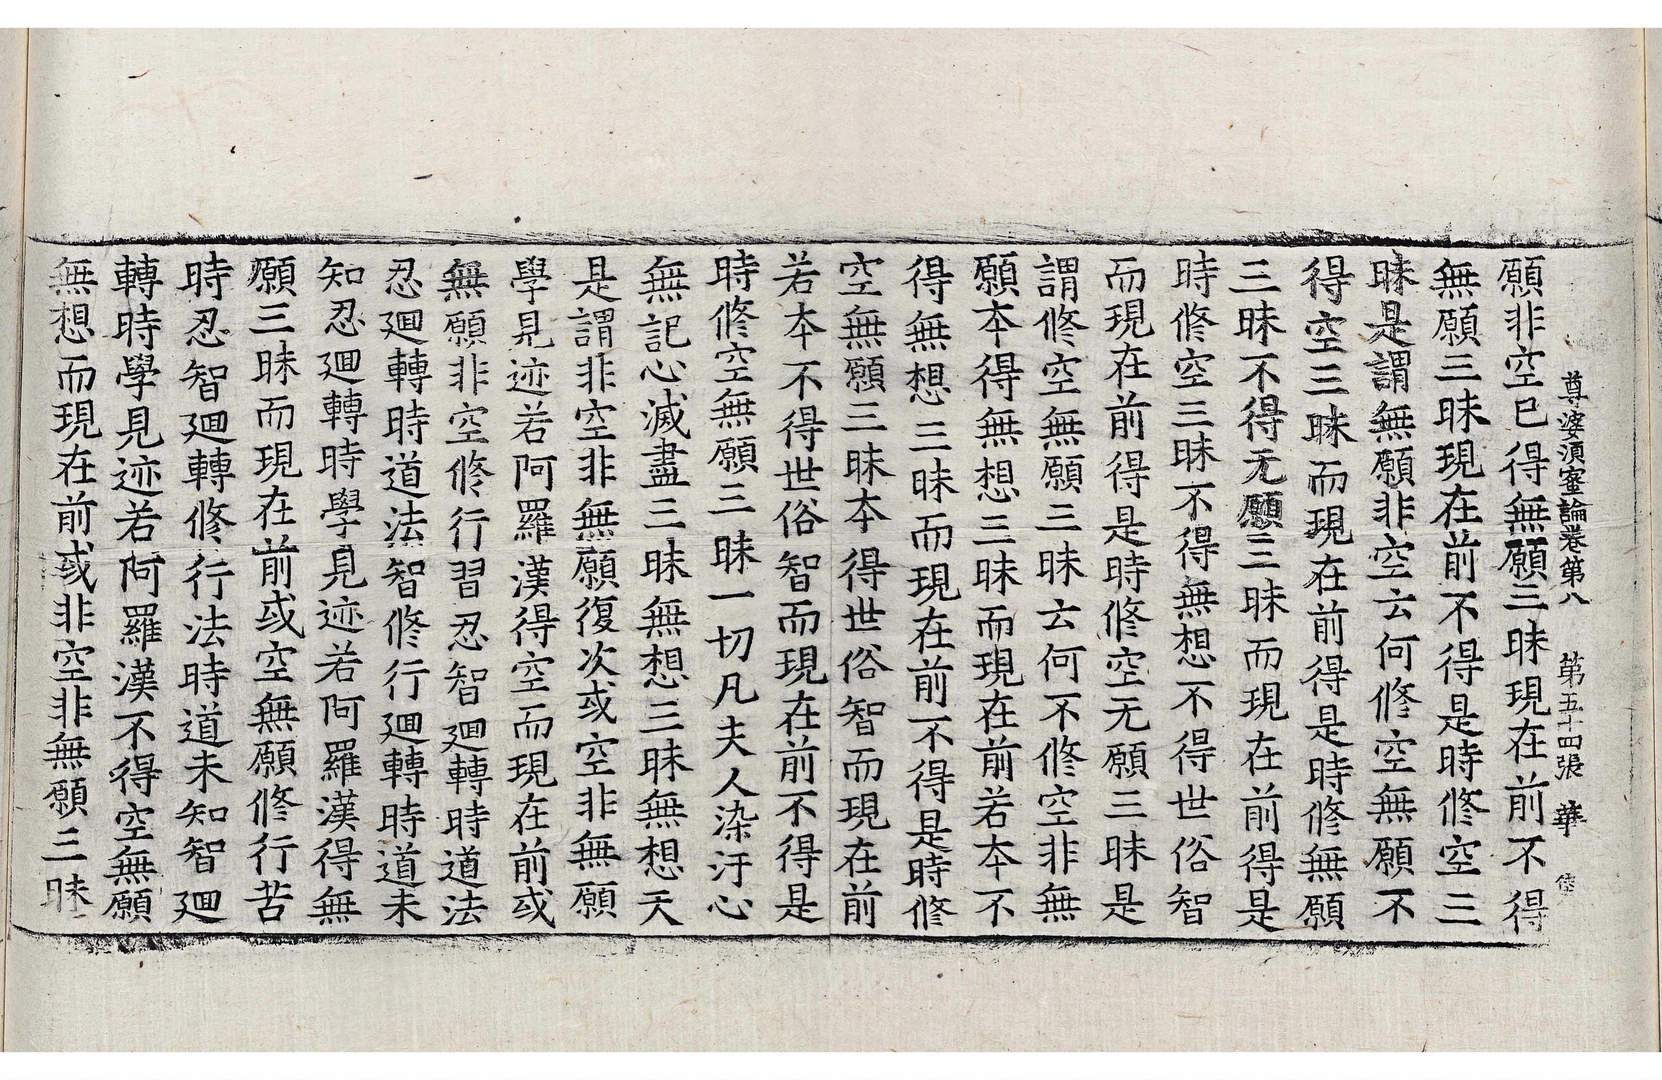 尊婆須蜜論卷第八 第五十四張 華
願非空已得無願三昧現在前不得
無願三昧現在前不得是時修空三
昧是謂無願非空云何修空無願不
得空三昧而現在前得是時修無願
三昧不得无願三昧而現在前得是
時修空三昧不得無想不得世俗智
而現在前得是時修空无願三昧是
謂修空無願三昧云何不修空非無
願本得無想三昧而現在前若本不
得無想三昧而現在前不得是時修
空無願三昧本得世俗智而現在前
若本不得世俗智而現在前不得是
時修空無願三昧一切凡夫人染汙心
無記心滅盡三昧無想三昧無想天
是謂非空非無願復次或空非無願
學見迹若阿羅漢得空而現在前或
無願非空修行習忍智廻轉時道法
忍廻轉時道法智修行廻轉時道未
知忍廻轉時學見迹若阿羅漢得無
願三昧而現在前或空無願修行苦
時忍智廻轉修行法時道未知智廻
轉時學見迹若阿羅漢不得空無願
無想而現在前或非空非無願三昧